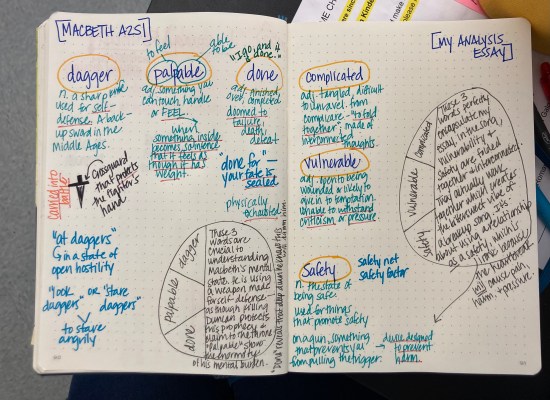 [MACBETH A2S1]
to feel
able to be
"I go, and it is done."
dagger
palpable
done
n. a sharp knife
used for self-
defense. A back-
up sword in the
Middle Ages.
adj. something you
can touch, handle
or FEEL.
when
something inside
becomes so intense
that it feels as
though it has
weight.
adj. finished,
over, completed
doomed to
failure,
death,
defeat
"done for" –
your fate is
sealed
physically
exhausted
carried into
battle
Crossguard
that protects
the
hand
"at daggers"
in a state of
open hostility
"look daggers" or "stare daggers"
to stare
angrily
dagger
palpable
done
These 3
words are
crucial to
understanding
Macbeth's mental
state. He is using
a weapon made
for self-defense
as though killing
Duncan protects
his prophecy &
claim to the throne.
"Palpable" shows
the enormity
of his mental burden.
"Done" reveals that deep down he knows this
[MY ANALYSIS
ESSAY]
complicated
adj. tangled, difficult
to unravel. from
complicare – "to fold
together"; made of
interconnected
thoughts.
vulnerable
adj. open to being
wounded or likely to
give in to temptation.
Unable to withstand
criticism or pressure.
Safety
safety net
safety factor
n. the state of
being safe
used for things
that promote safety
on a gun, something
that prevents you
from pulling the trigger.
device designed
to prevent
harm.
complicated
vulnerable
safety
These 3
words perfectly
encapsulate my
essay.
vulnerability &
safety are folded
together & interconnected
that actually work
together which creates
the
song
about using a relationship
as a safety, which
the
will cause pain,
harm, pressure